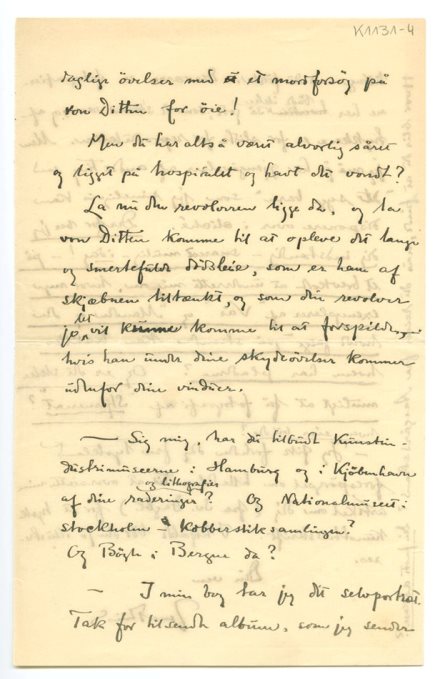 K1131-4
daglige övelser med et mordforsög på
von Ditten for öie!
Men du har altså været alvorlig såret
og ligget på hospitalet og havt det vondt?
La nu den revolveren ligge da, og la
von Ditten komme til at opleve det lange
og smertefulde dödsleie, som er ham af
skjæbnen tiltænkt, og som din revolver
jo let vil komme til at forspilde,
hvis han under dine skydeövelser kommer
udenfor dine vinduer.
— Sig mig, har du tilbudt Kunstin-
dustrimuseerne i Hamburg og i Kjöbenhavn
af dine raderinger og lithografier? Og Nationalmuseet i
Stockholm – Kobberstiksamlingen?
Og Bögh i Bergen da?
— I min bog har jeg dit selvportræt.
Tak for tilsendt album, som jeg sender